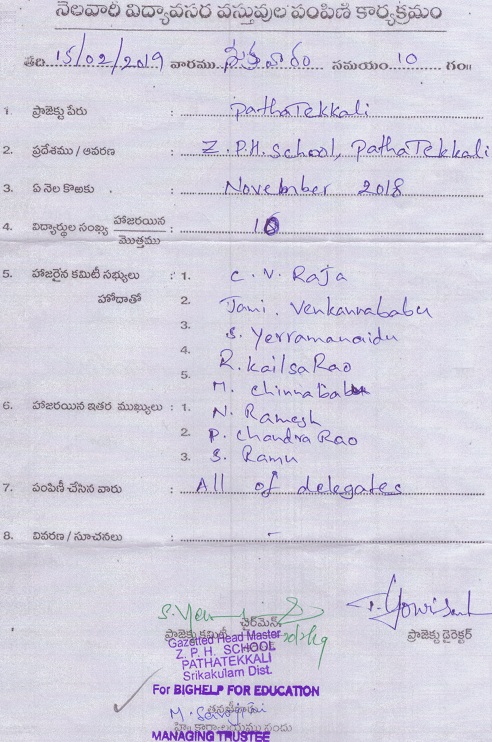 నెలవారీ విద్యావసర వస్తువుల పంపిణీ కార్యక్రమం
తేది 15/02/2019 వారము శుక్రవారం సమయం 10 గం॥
1. ప్రాజెక్టు పేరు : PathaTekkali
2. ప్రదేశము / ఆవరణ : Z.P.H. School, PathaTekkali
3. ఏ నెల కొఱకు : November 2018
4. విద్యార్థుల సంఖ్య హాజరయిన / మొత్తము : 10
5. హాజరైన కమిటీ సభ్యులు : 1. C. V. Raja
హోదాతో 2. Jami. Venkannababu
3. S. Yerramanaidu
4. R. Kailsa Rao
5. M. Chinnababu
6. హాజరయిన ఇతర ముఖ్యులు : 1. N. Ramesh
2. P. Chandra Rao
3. S. Ramu
7. పంపిణీ చేసిన వారు : All of delegates
8. వివరణ / సూచనలు : -
ప్రాజెక్టు కమిటీ ఛైర్మెన్ ప్రాజెక్టు డైరెక్టర్
Gazetted Head Master
Z. P. H. SCHOOL
PATHATEKKALI
Srikakulam Dist.
For BIGHELP FOR EDUCATION
MANAGING TRUSTEE